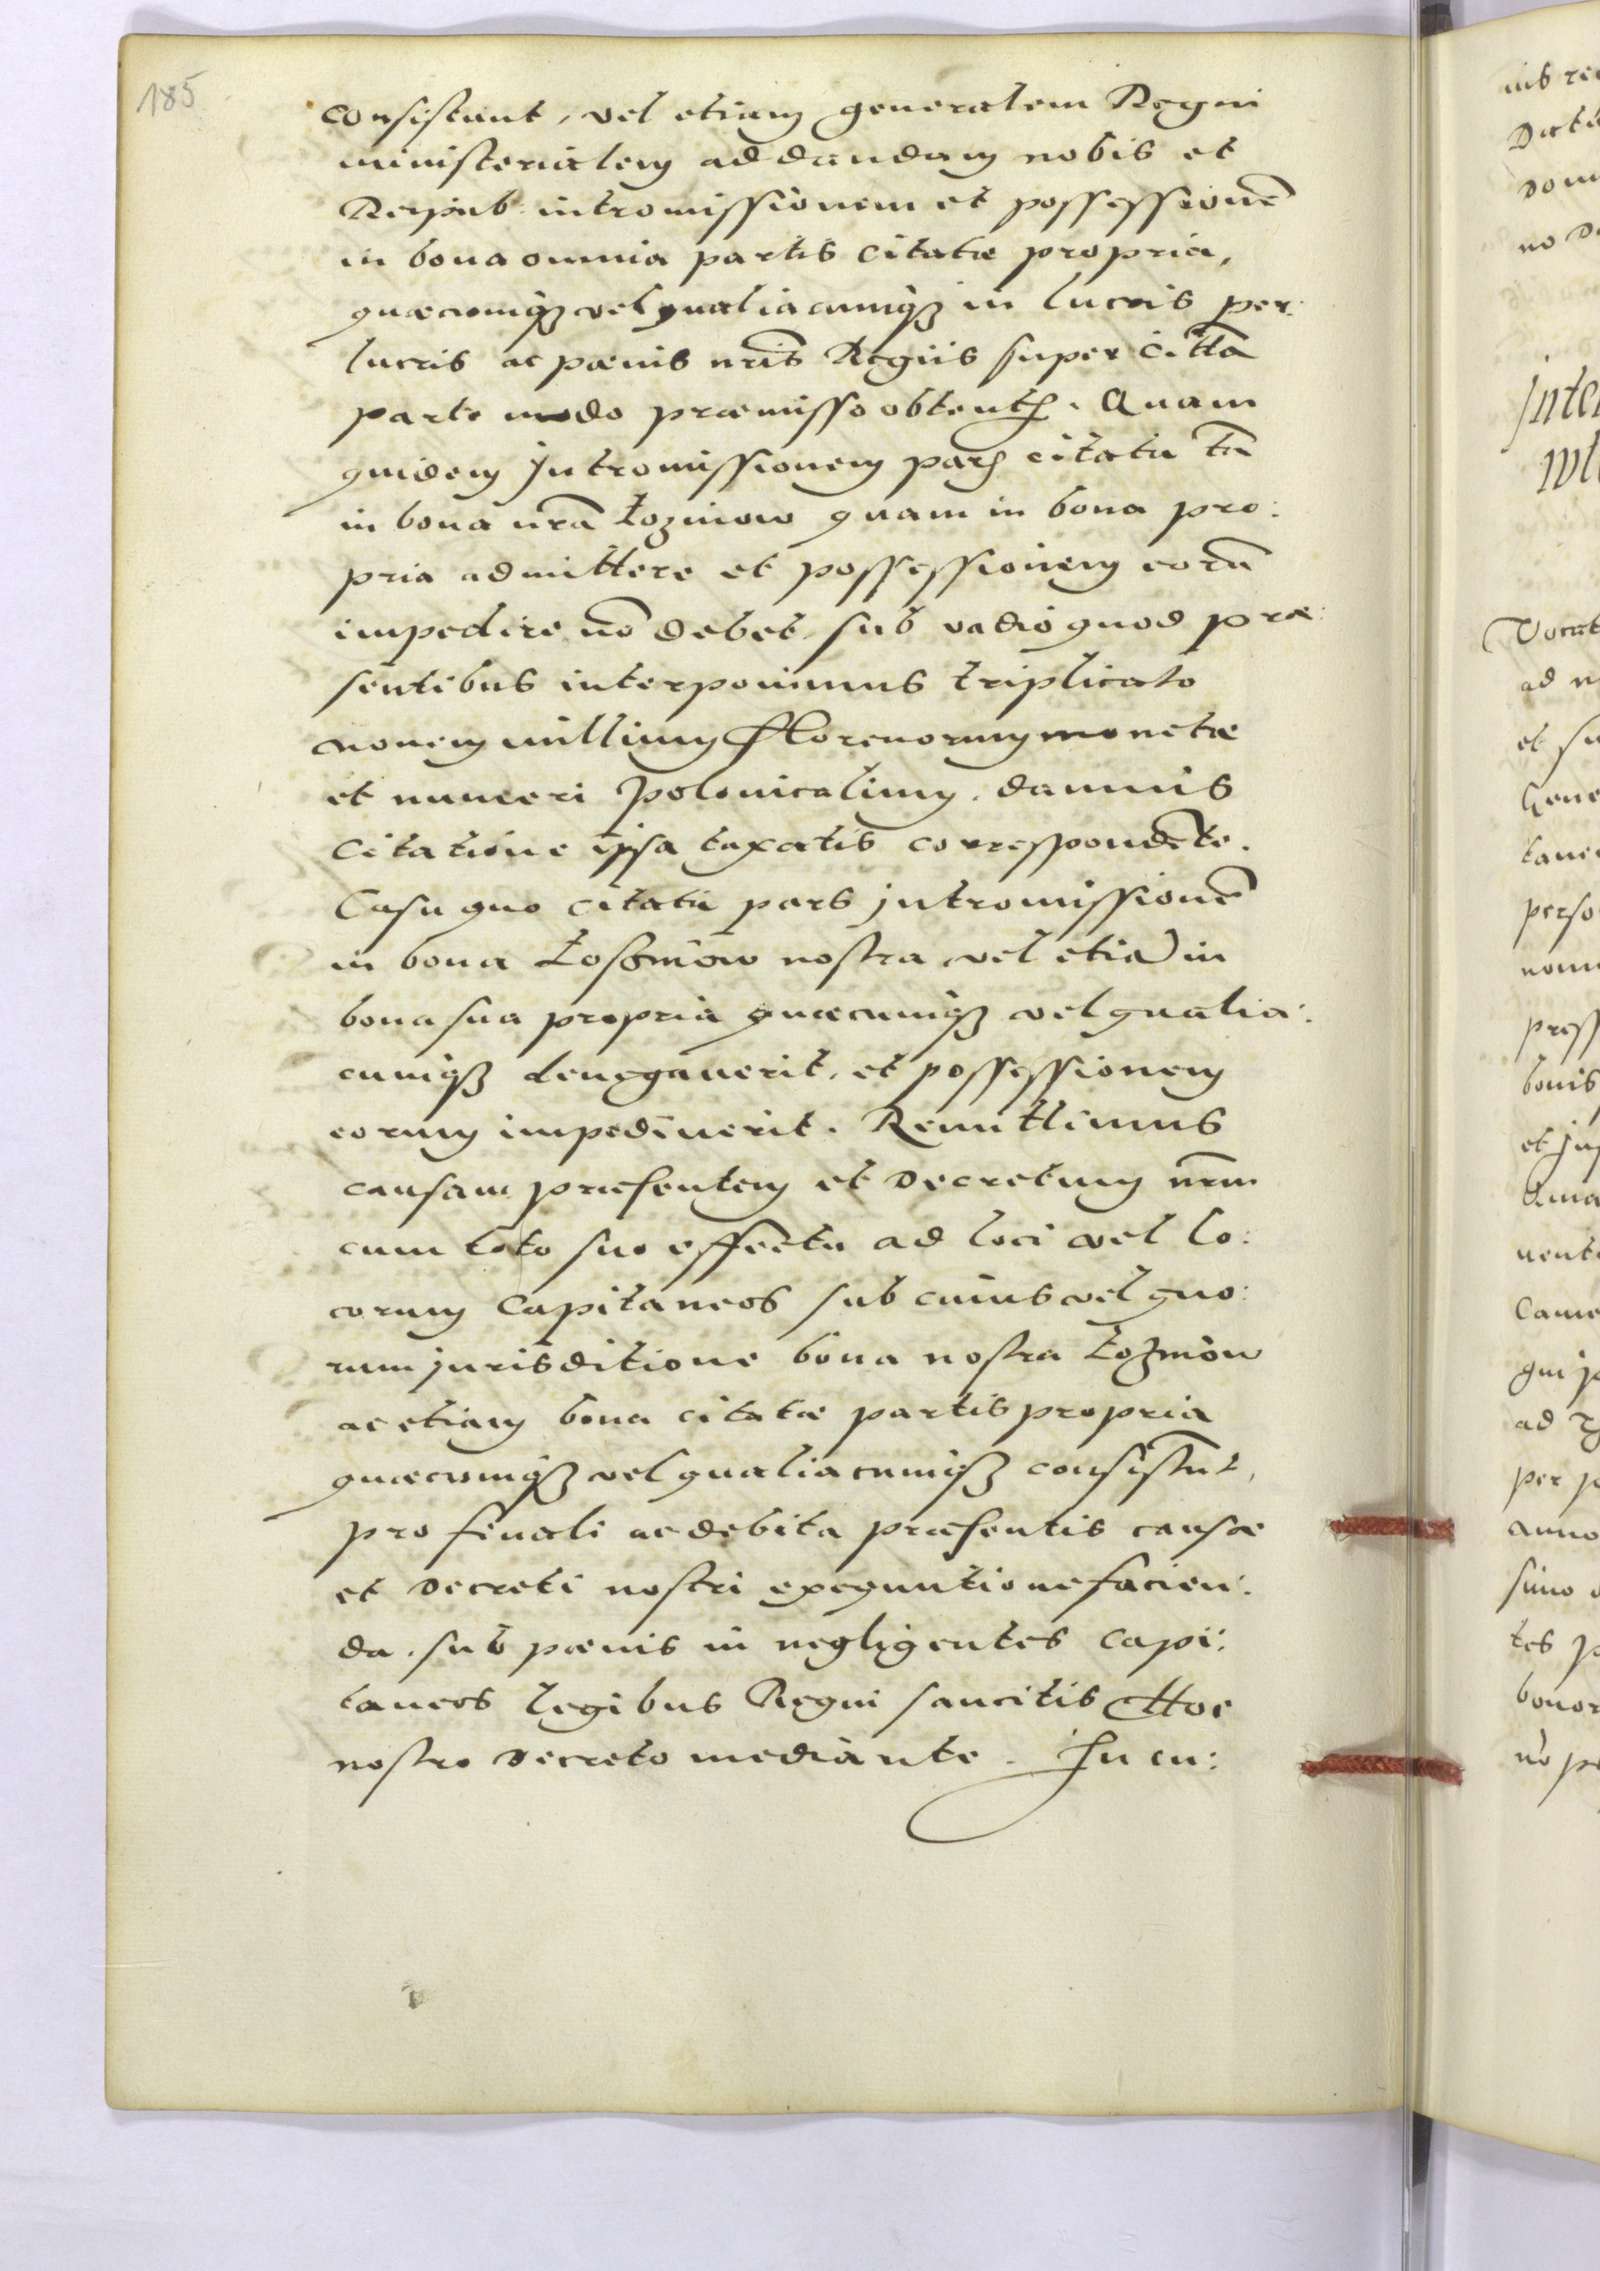 185
consistunt, vel etiam generalem Regni
ministerialem ad dandam nobis et
Reipub: intromissionem et possessionē
in bona omnia partis citatæ propria,
quæcunq; vel qualiacunq; in lucris per:
lucris ac pœnis nr̄is Regiis super citta
parte modo præmisso obtent. Quam
quidem Intromissionem pars citata tā
in bona nr̄a Łozniow quam in bona pro:
pria admittere et possessionem eorū
impedire nō debet, sub vadio quod præ:
sentibus interponimus triplicato
novem millium Florenorum monetæ
et numeri Polonicalium. damnis
Citatione ipsa taxatis correspondēte.
Casu quo citata pars intromissionē
in bona Łozniow nostra vel etiā in
bona sua propria quæcunq; vel qualia:
cunq; denegauerit, et possessionem
eorum impediuerit. Remittimus
causam præsentem et Decretum nr̄m
cum toto suo effectu ad loci vel lo:
corum Capitaneos sub cuius vel quo:
rum jurisditione bona nostra Łozniow
ac etiam bona citatæ partis propria
quæcunq; vel qualiacunq; consistūt,
pro finali ac debita præsentis causæ
et Decreti nostri exequutione facien:
da. sub pœnis in negligentes Capi:
taneos legibus Regni sancitis Hoc
nostro Decreto mediante. In cu: